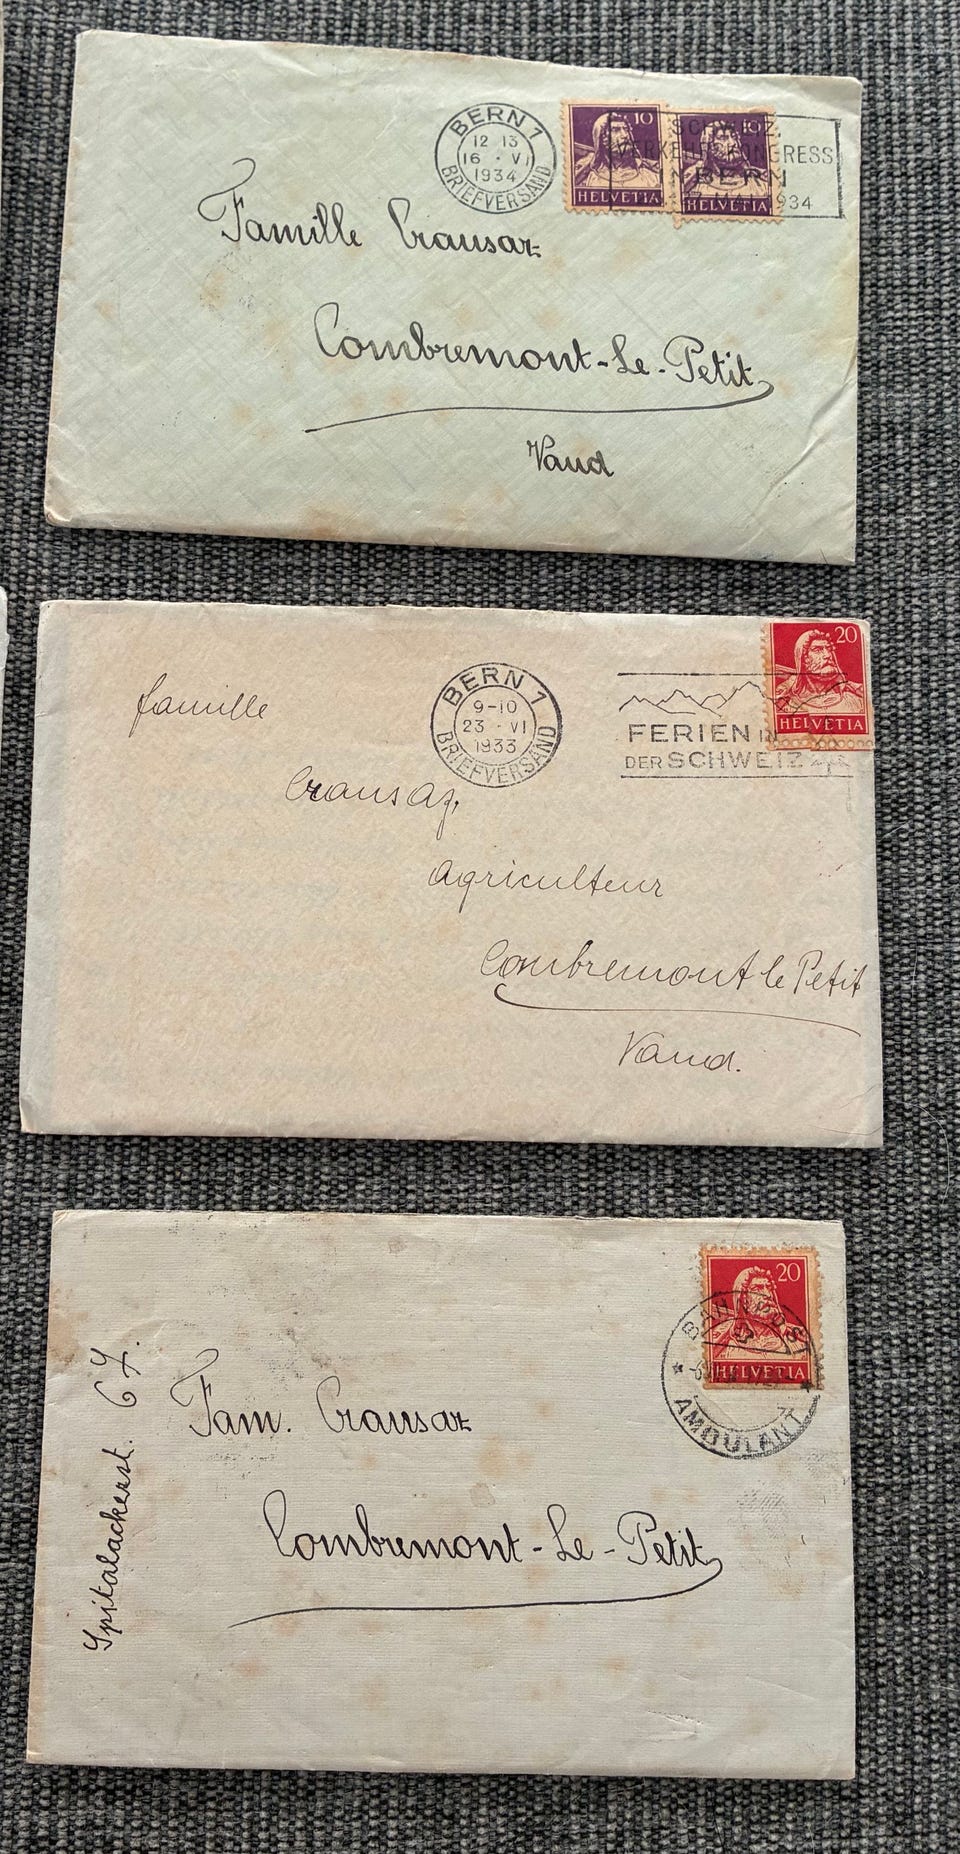 BERN 1
12 13
16 · VI
1934
BRIEFVERSAND
10
HELVETIA
10
HELVETIA
SCHWEIZ.
VERKEHRSKONGRESS
IN BERN
1934
Famille Crausaz
Combremont-Le-Petit
Vaud
20
HELVETIA
BERN 1
9-10
23 · VI
1933
BRIEFVERSAND
FERIEN IN
DER SCHWEIZ
famille
Crausaz,
Agriculteur
Combremont le Petit
Vaud.
20
HELVETIA
AMBULANT
Fam. Crausaz
Combremont-Le-Petit
Spitalackerst. 67.